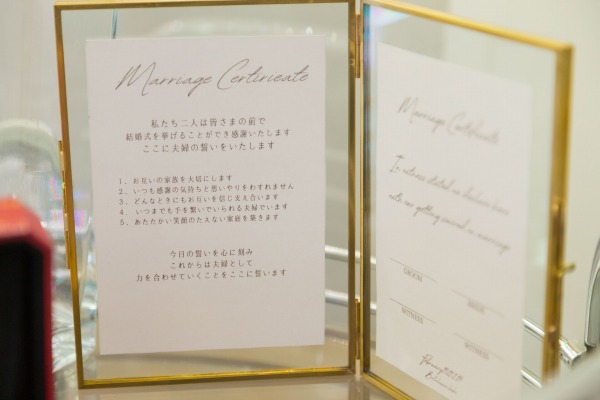 Marriage Certiricate
私たち二人は皆さまの前で
結婚式を挙げることができ感謝いたします
ここに夫婦の誓いをいたします
1、お互いの家族を大切にします
2、いつも感謝の気持ちと思いやりをわすれません
3、どんなときにもお互いを信じ支え合います
4、いつまでも手を繋いでいられる夫婦でいます
5、あたたかい笑顔のたえない家庭を築きます
今日の誓いを心に刻み
これからは夫婦として
力を合わせていくことをここに誓います
Marriage Certificate
GROOM
BRIDE
WITNESS
WITNESS